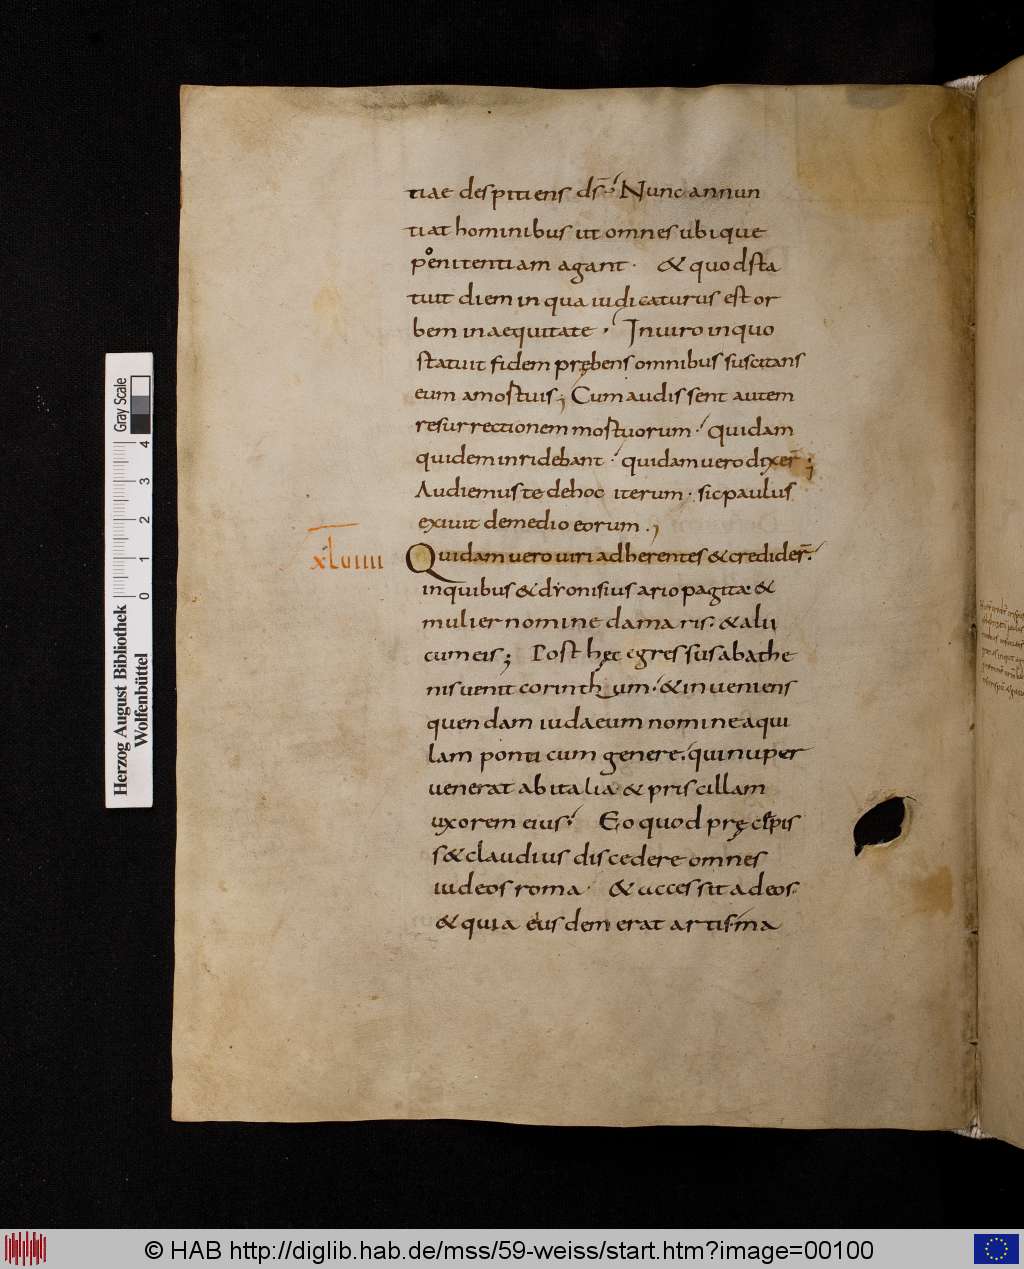 tiae despitiens ds̄; Nunc annun
tiat hominibus ut omnes ubique
poenitentiam agant · & quod sta
tuit diem in qua iudicaturus est or
bem in aequitate · In uiro in quo
statuit fidem prębens omnibus suscitans
eum a mortuis; Cum audissent autem
resurrectionem mortuorum · quidam
quidem inridebant · quidam uero dixer̄;
Audiemus te de hoc iterum · sic paulus
exiuit de medio eorum .,
xLuiiii
Quidam uero uiri adherentes & credider̄.
in quibus & dyonisius ariopagitæ &
mulier nomine damaris. & alii
cum eis; Post hęc egressus ab athe
nis uenit corinthum. & inueniens
quendam iudaeum nomine aqui
lam ponticum genere. qui nuper
uenerat ab italia & priscillam
uxorem eius. Eo quod pręcepis
s& claudius discedere omnes
iudeos roma · & accessit ad eos.
& quia eiusdem erat artis. ma
Herzog August Bibliothek
Wolfenbüttel
0 1 2 3 4
Gray Scale
© HAB http://diglib.hab.de/mss/59-weiss/start.htm?image=00100